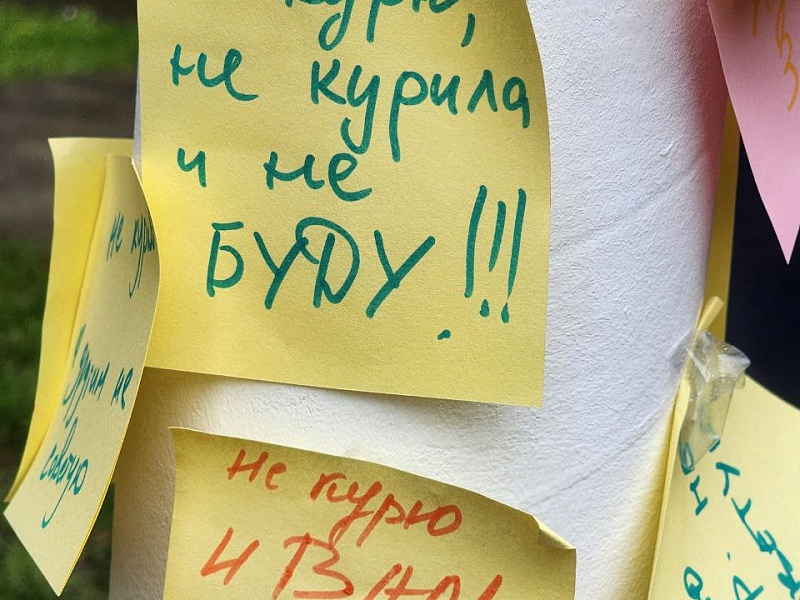 курю,
не курила
и не
БУДУ!!!
не курю
Другим не
советую
Не курю
И ВАМ